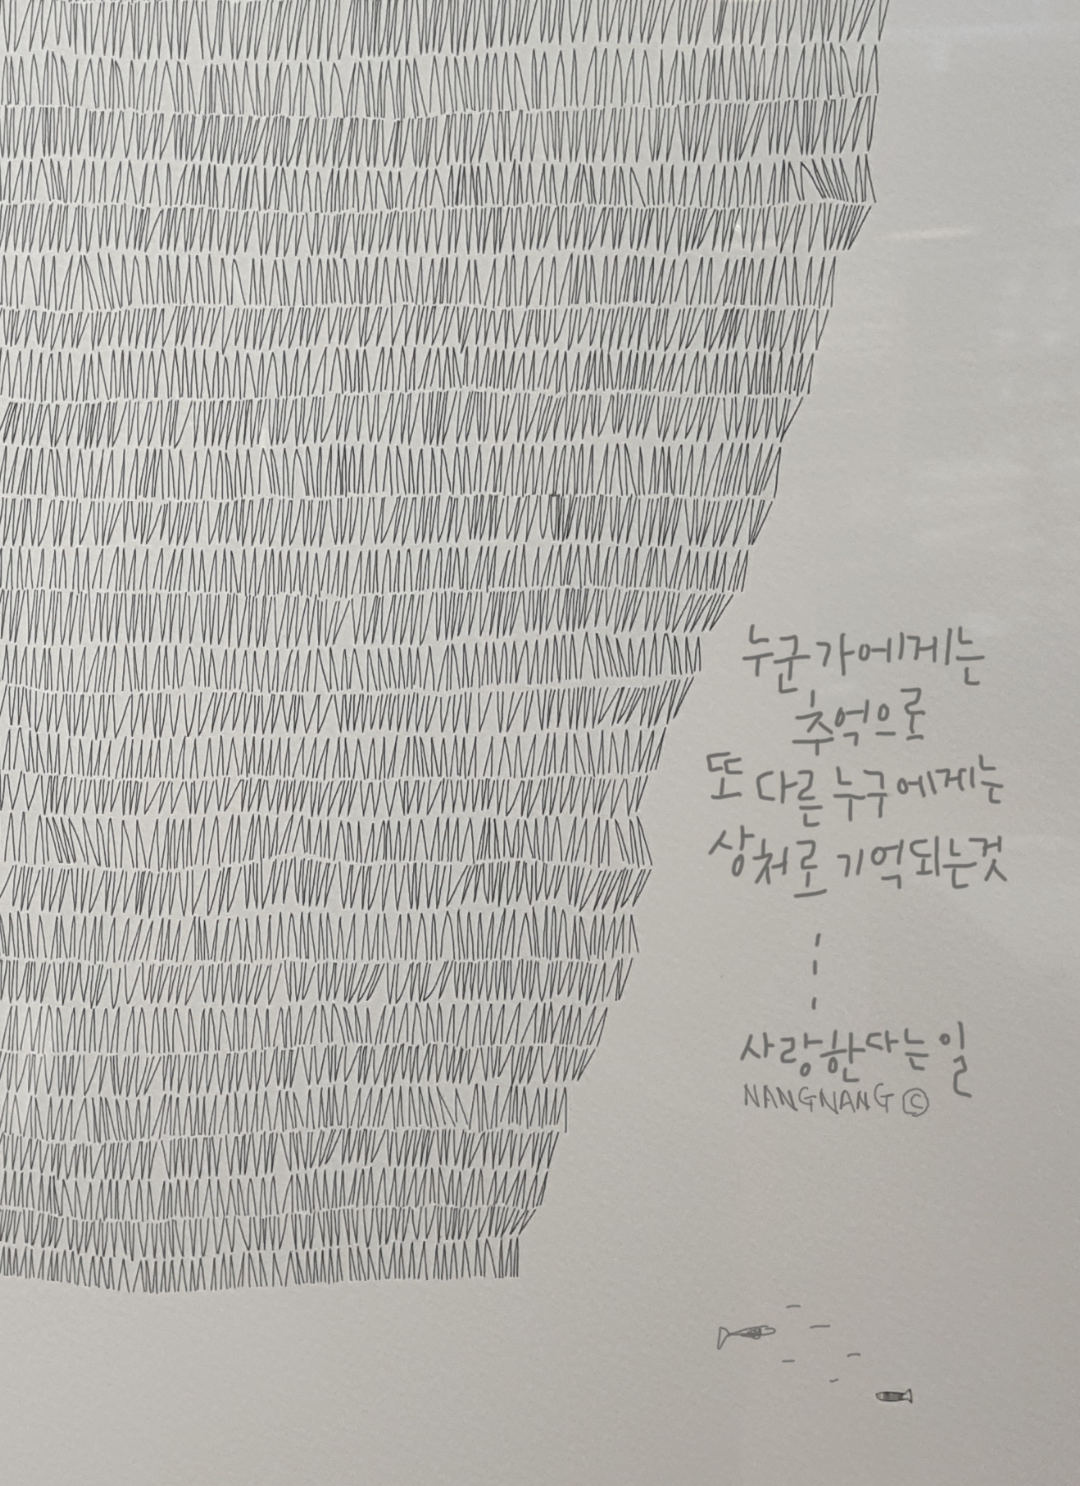 누군가에게는
추억으로
또 다른 누구에게는
상처로 기억되는것
사랑한다는 일
NANGNANG ©